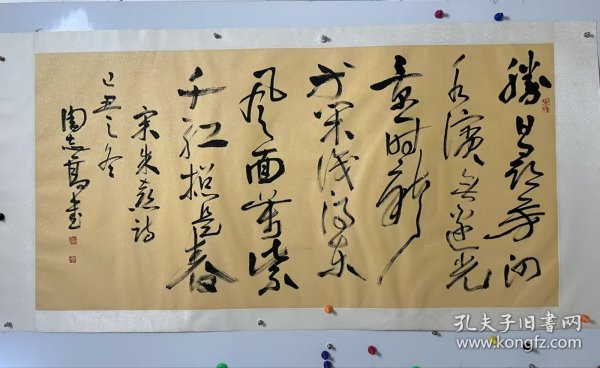 勝日尋芳泗
水濱無邊光
景一时新
等閑識得東
风面萬紫
千紅摠是春
宋朱熹詩
己丑之冬
陶志書
孔夫子旧书网
www.kongfz.com